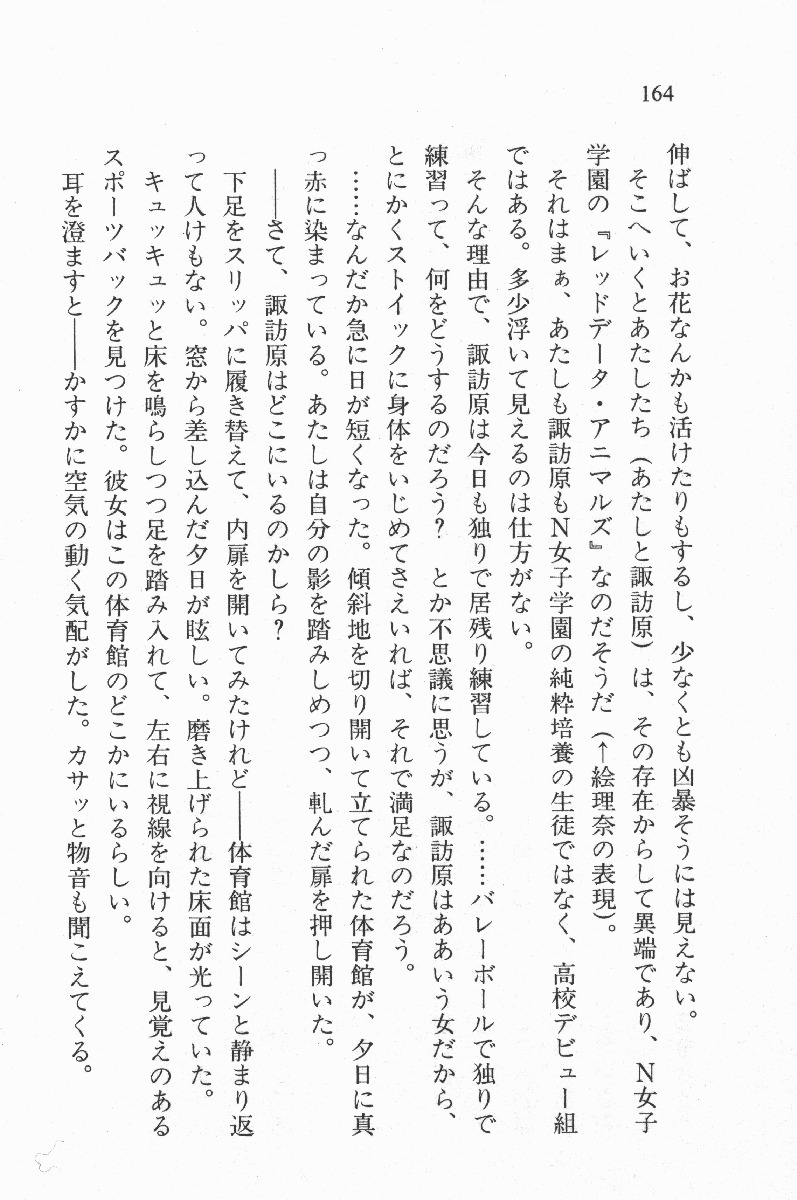 164
伸ばして、お花なんかも活けたりもするし、少なくとも凶暴そうには見えない。
そこへいくとあたしたち（あたしと諏訪原）は、その存在からして異端であり、N女子
学園の『レッドデータ・アニマルズ』なのだそうだ（↑絵理奈の表現）。
それはまぁ、あたしも諏訪原もN女子学園の純粋培養の生徒ではなく、高校デビュー組
ではある。多少浮いて見えるのは仕方がない。
そんな理由で、諏訪原は今日も独りで居残り練習している。……バレーボールで独りで
練習って、何をどうするのだろう？　とか不思議に思うが、諏訪原はああいう女だから、
とにかくストイックに身体をいじめてさえいれば、それで満足なのだろう。
……なんだか急に日が短くなった。傾斜地を切り開いて立てられた体育館が、夕日に真
っ赤に染まっている。あたしは自分の影を踏みしめつつ、軋んだ扉を押し開いた。
――さて、諏訪原はどこにいるのかしら？
下足をスリッパに履き替えて、内扉を開いてみたけれど――体育館はシーンと静まり返
って人けもない。窓から差し込んだ夕日が眩しい。磨き上げられた床面が光っていた。
キュッキュッと床を鳴らしつつ足を踏み入れて、左右に視線を向けると、見覚えのある
スポーツバックを見つけた。彼女はこの体育館のどこかにいるらしい。
耳を澄ますと――かすかに空気の動く気配がした。カサッと物音も聞こえてくる。